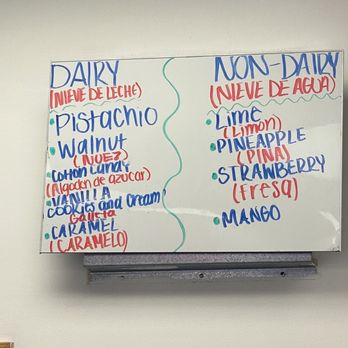 DAIRY
(NIEVE DE LECHE)
Pistachio
Walnut
(NUEZ)
Cotton Candy
(Algodon de azucar)
VANILLA
Cookies and Dream
Galleta
CARAMEL
(CARAMELO)
NON-DAIRY
(NIEVE DE AGUA)
Lime
(Limon)
PINEAPPLE
(PIÑA)
STRAWBERRY
(Fresa)
MANGO